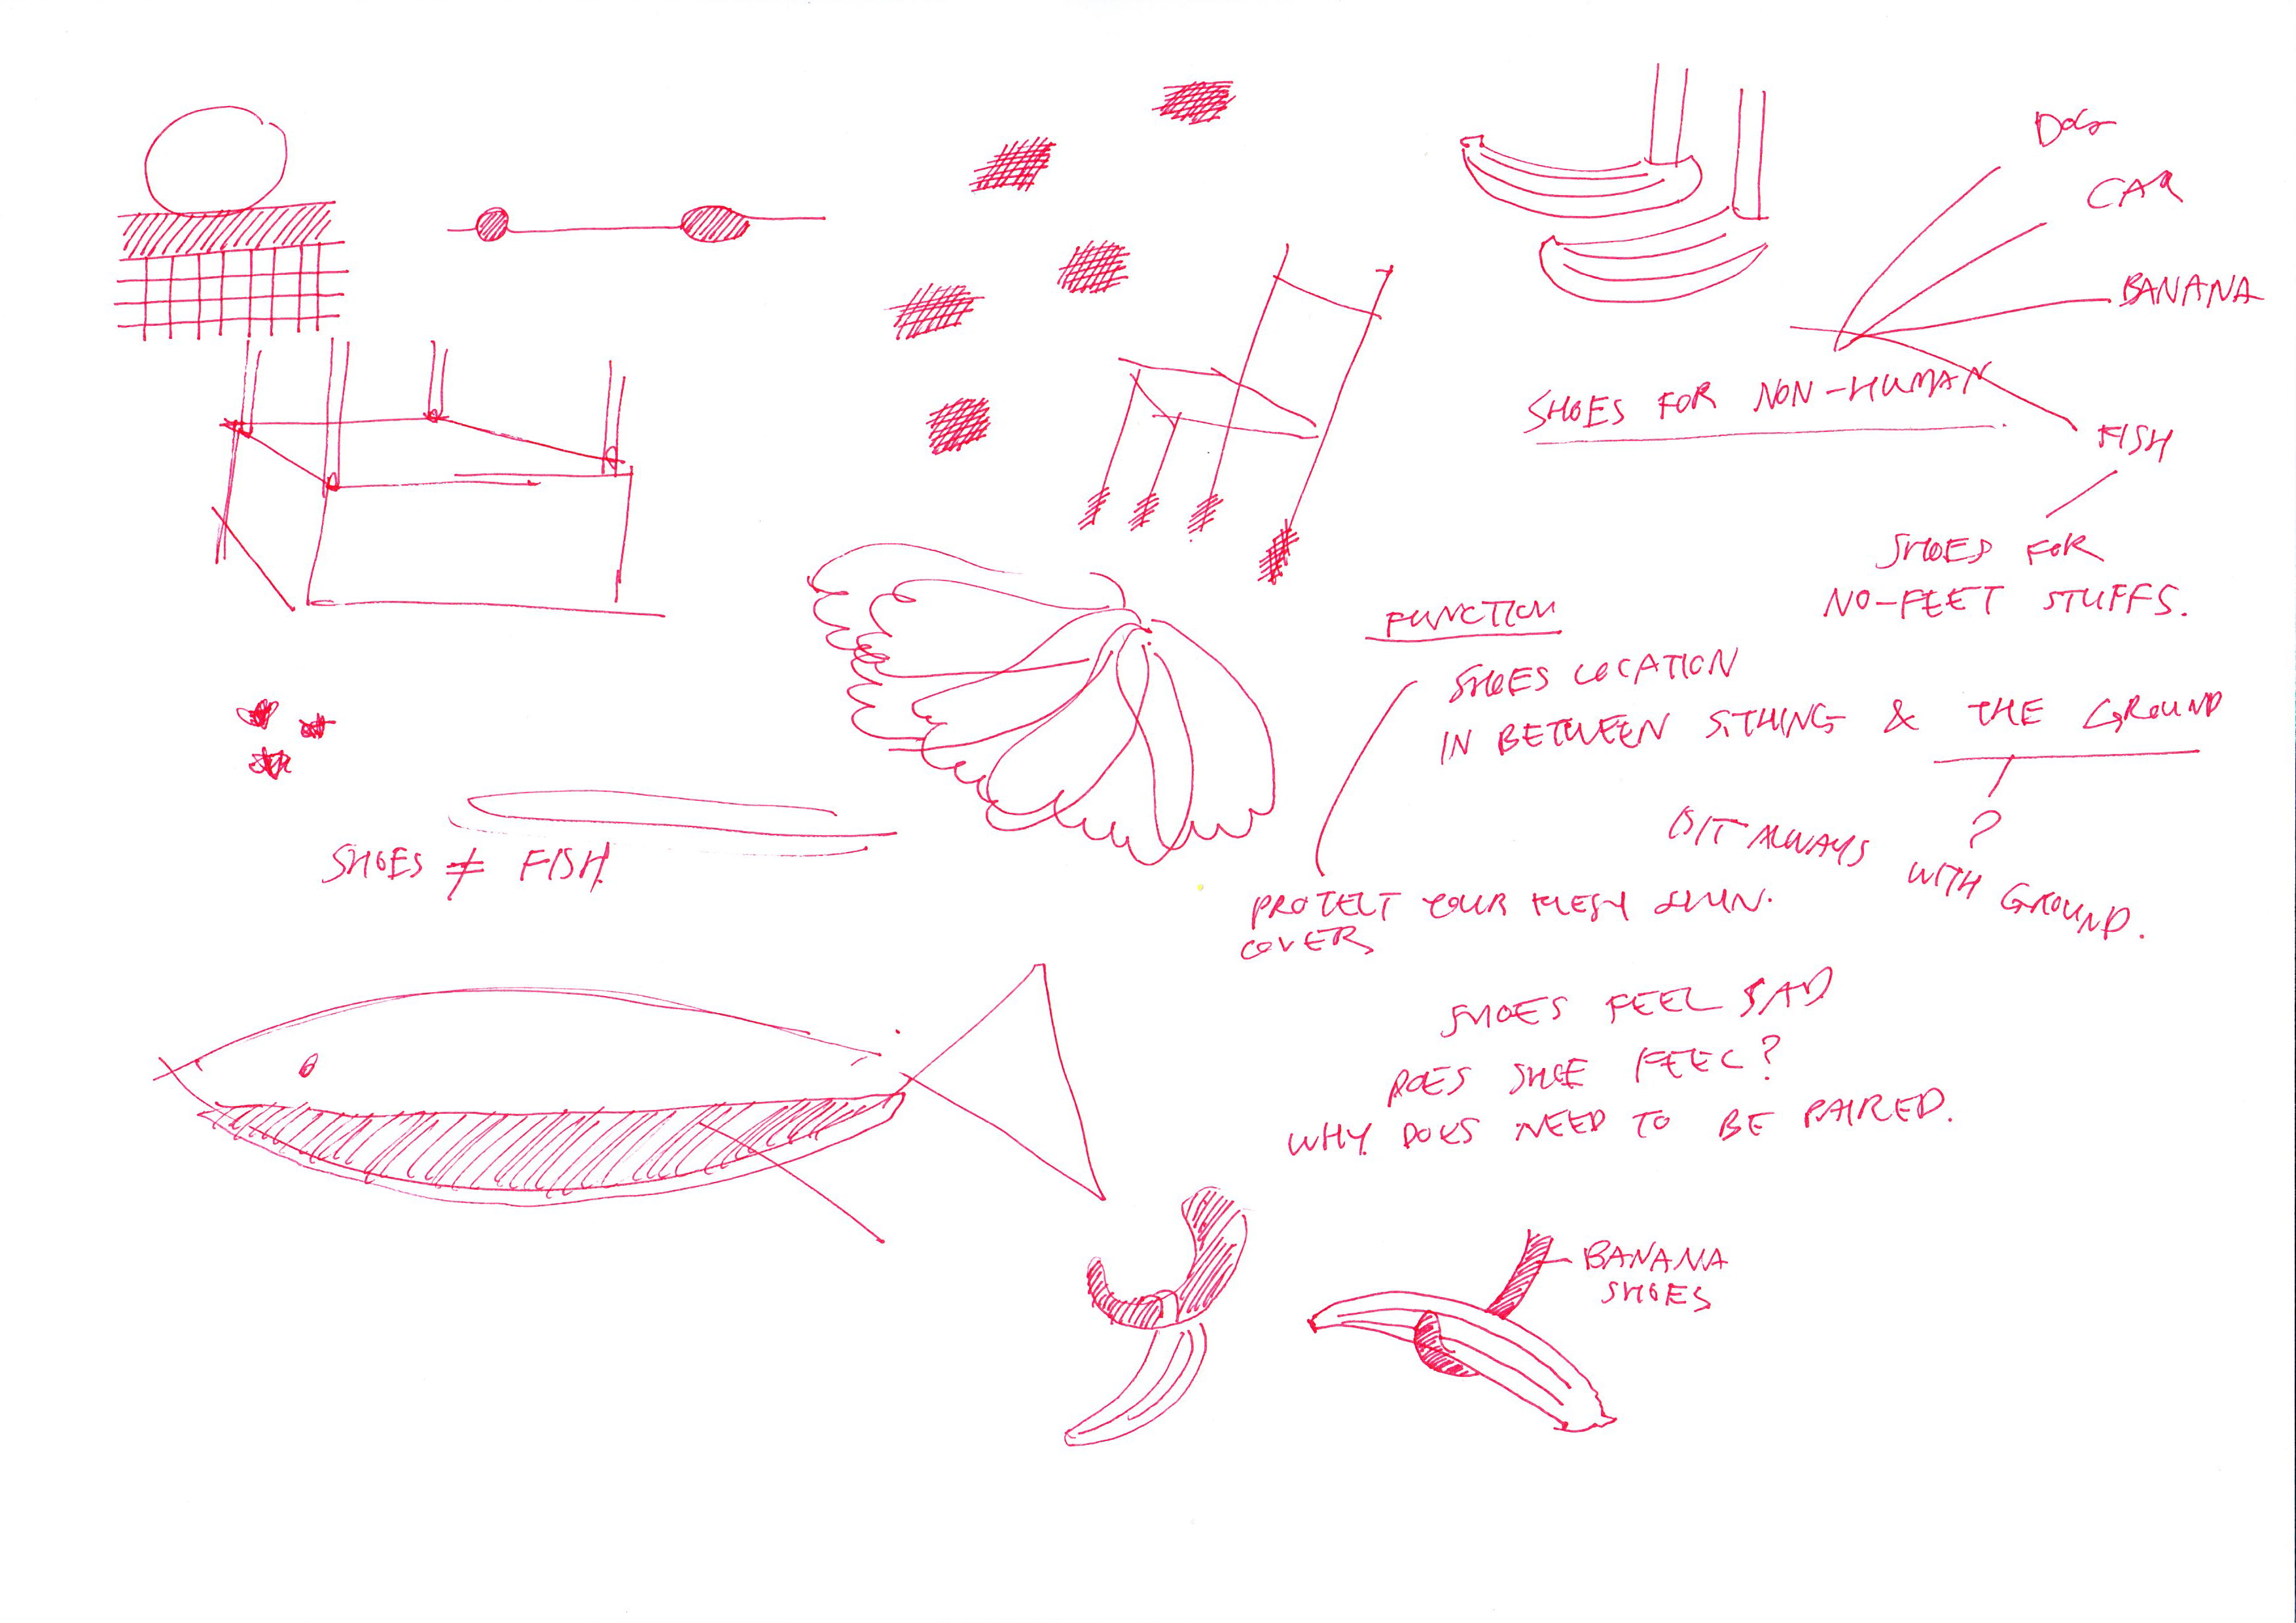 DOG
CAR
BANANA
SHOES FOR NON-HUMAN
FISH
SHOES FOR
NO-FEET STUFFS.
FUNCTION
SHOES LOCATION
IN BETWEEN S.THING & THE GROUND
?
IS IT ALWAYS WITH GROUND.
SHOES ≠ FISH
PROTECT YOUR FLESH SKIN.
COVER
SHOES FEEL SAD
DOES SHOE FEEL?
WHY DOES NEED TO BE PAIRED.
BANANA
SHOES